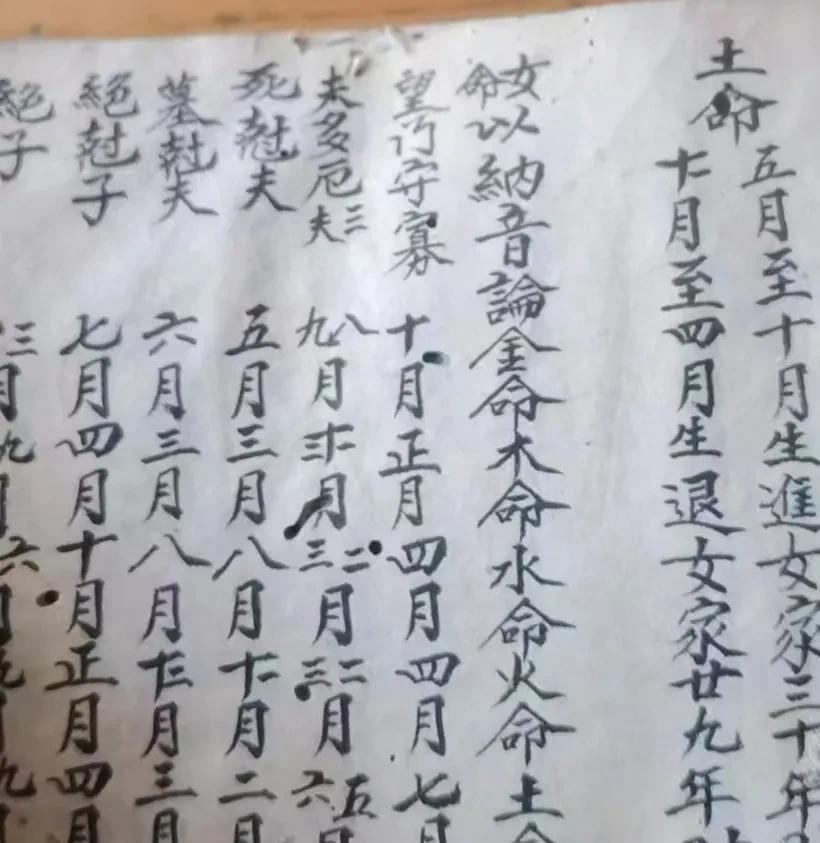 土命
五月至十月生進女家三十年
十二月至四月生退女家廿九年
女命以納音論金命木命水命火命土命
望門守寡 十月正月四月四月七月
夫多厄三夫 八九月 二三月 二三月 五六月
死尅夫 五月三月八月十二月二月
墓尅夫 六月三月八月十二月三月
絕尅子 七月四月十月正月四月
絕子 三月九月六月九月